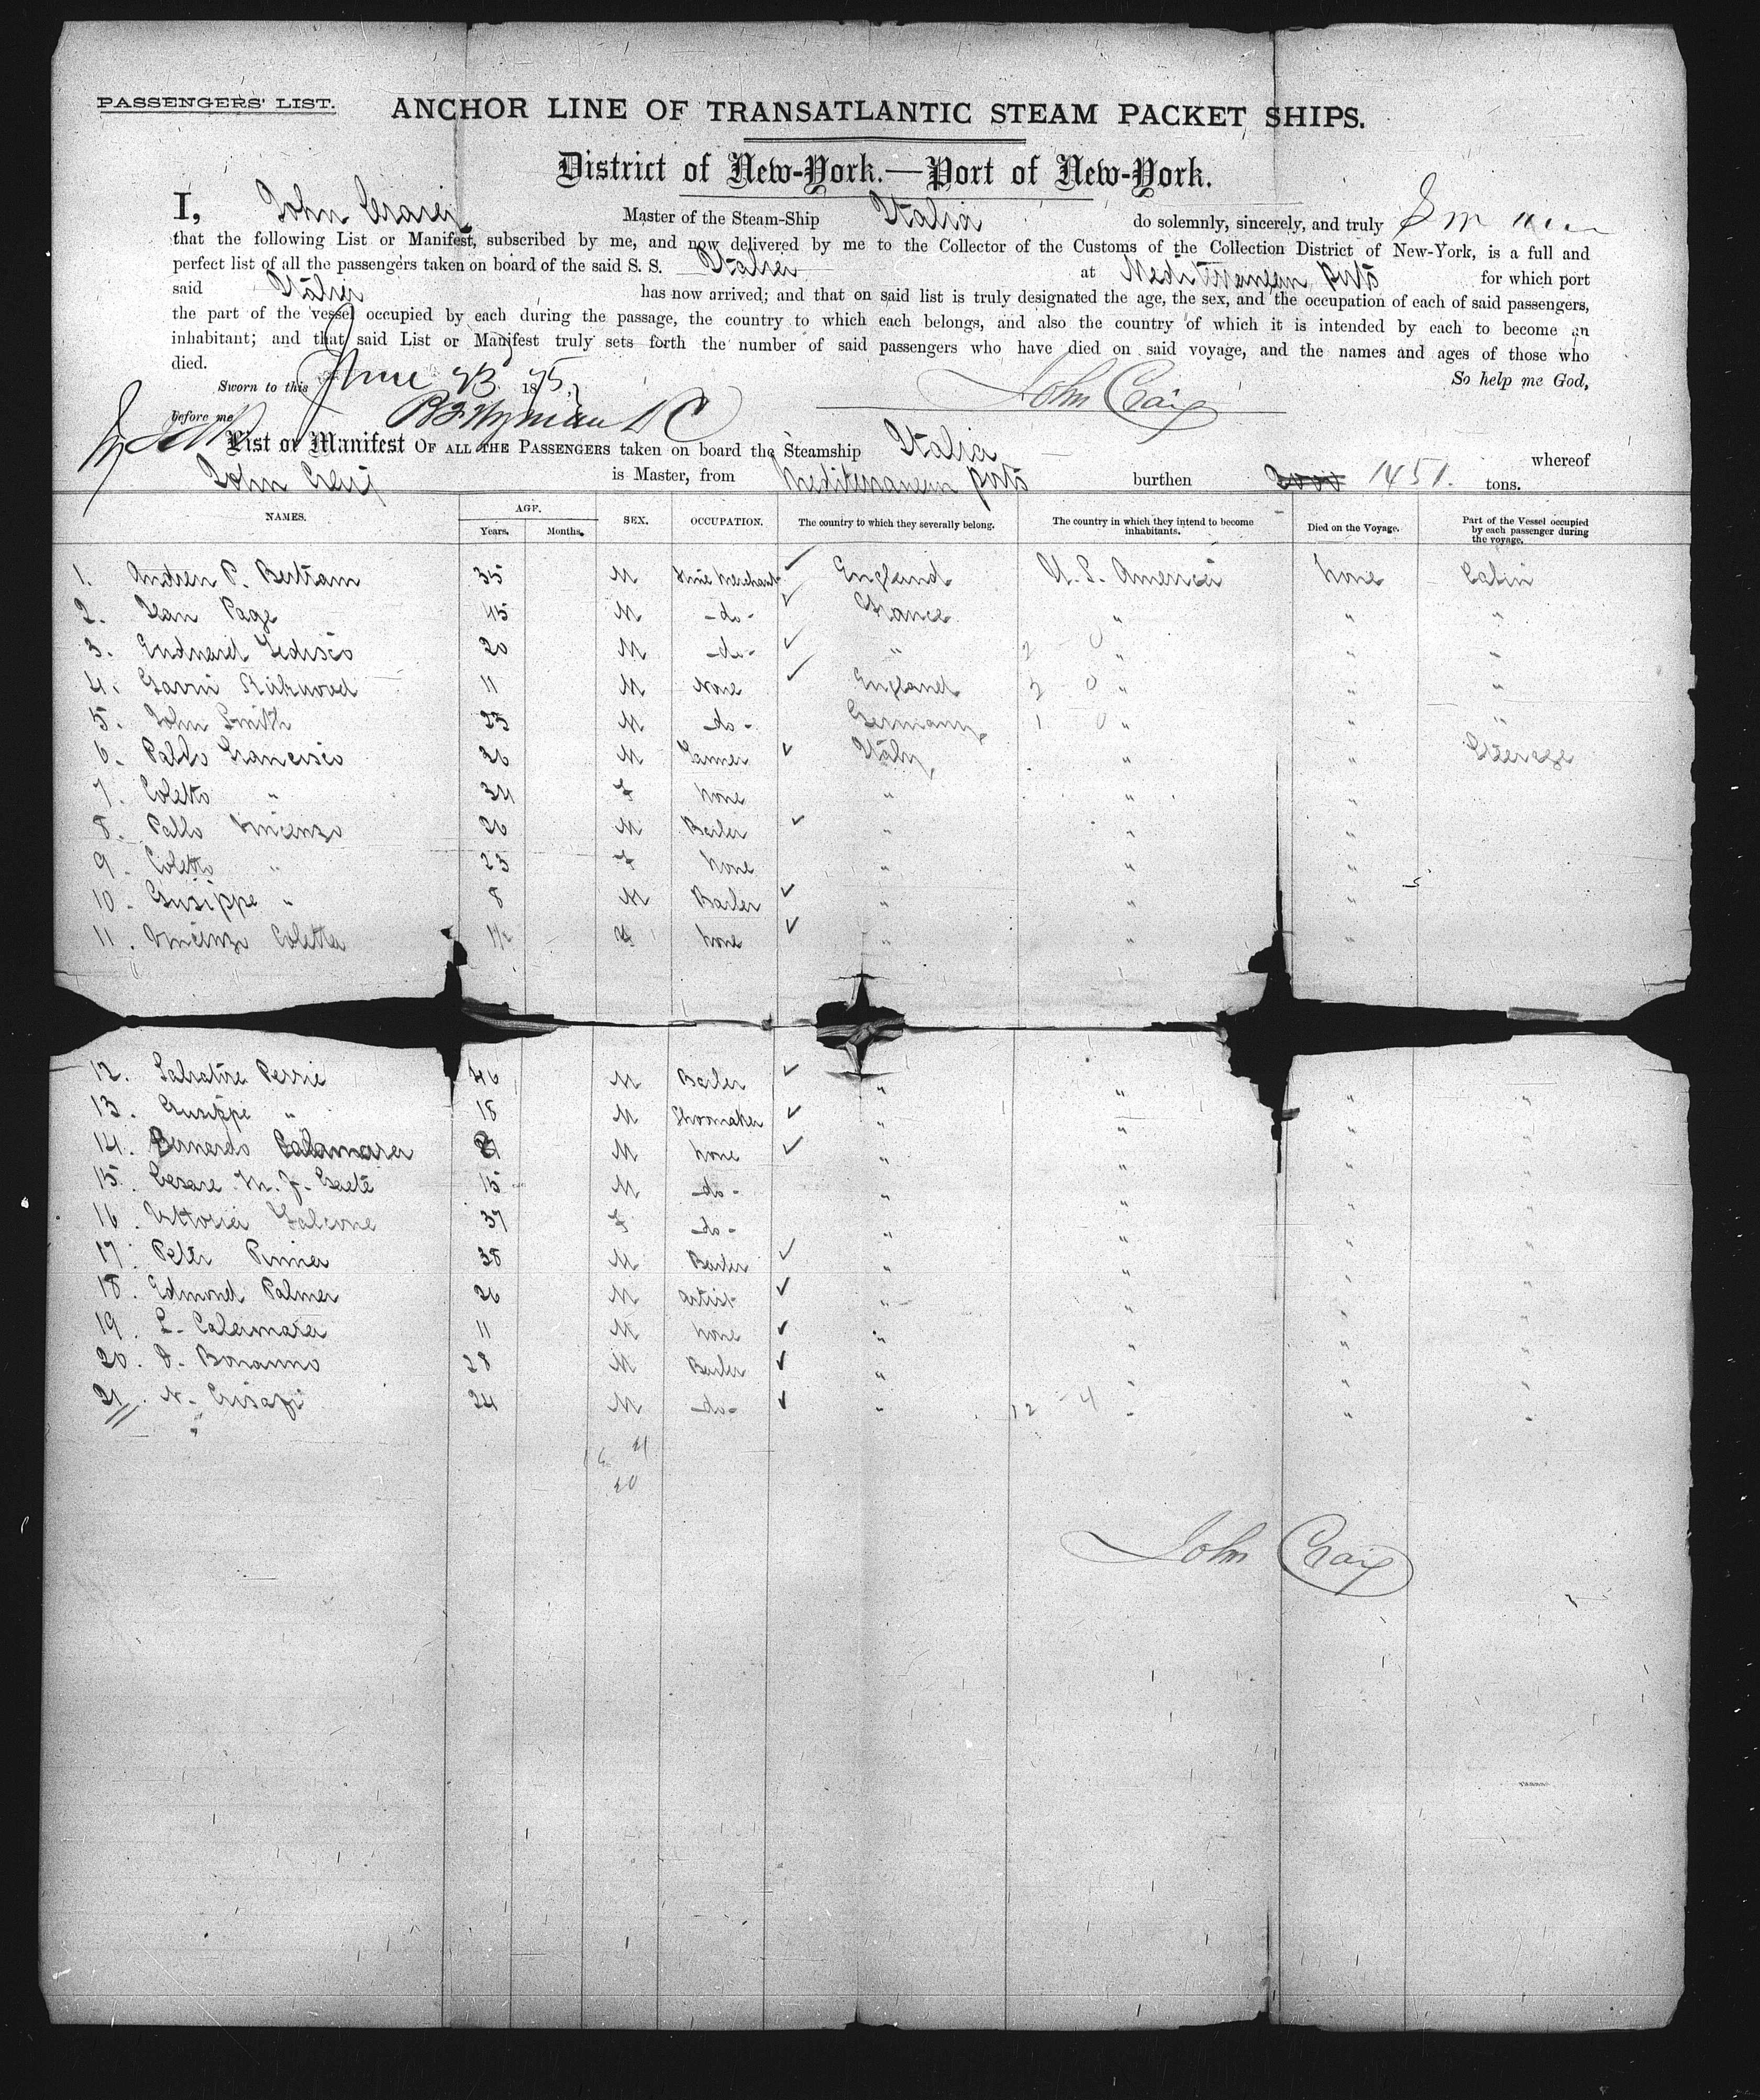 PASSENGERS' LIST. ANCHOR LINE OF TRANSATLANTIC STEAM PACKET SHIPS.
District of New-York.—Port of New-York.
I, John Craig Master of the Steam-Ship Italia do solemnly, sincerely, and truly
that the following List or Manifest, subscribed by me, and now delivered by me to the Collector of the Customs of the Collection District of New-York, is a full and
perfect list of all the passengers taken on board of the said S. S. Italia at Mediterranean ports for which port
said Italia has now arrived; and that on said list is truly designated the age, the sex, and the occupation of each of said passengers,
the part of the vessel occupied by each during the passage, the country to which each belongs, and also the country of which it is intended by each to become an
inhabitant; and that said List or Manifest truly sets forth the number of said passengers who have died on said voyage, and the names and ages of those who
died. So help me God,
Sworn to this June 23 1875. John Craig
before me
List or Manifest OF ALL THE PASSENGERS taken on board the Steamship Italia whereof
John Craig is Master, from Mediterranean ports burthen 1451. tons.
NAMES. AGE. Years. Months. SEX. OCCUPATION. The country to which they severally belong. The country in which they intend to become inhabitants. Died on the Voyage. Part of the Vessel occupied by each passenger during the voyage.
1. Andrew P. Bertram 35 M Wine Merchant England U. S. America None Cabin
2. Jean Page 45 M -do- France " " "
3. 20 M -do- " " " "
4. Gavin Kirkwood 11 M None England " " "
5. John Smith 23 M -do- Germany " " "
6. Pallo Francisco 36 M Farmer Italy " " Steerage
7. Coletto " 34 F None " " "
8. Pallo Vincenzo 26 M Bailer " " "
9. Coletto " 23 F None " " "
10. Gusippe " 8 M Bailer " " "
11. Vincenzo Coletta F None " " "
12. Salvatore Perrie 46 M Bailer " " " "
13. Gusippe " 18 M Shoemaker " " " "
14. Bernardo Calamara M None " " " "
15. Cesare M. J. Gaete 15 M -do- " " " "
16. Vittoria Falcone 37 F -do- " " " "
17. Peter 38 M Bailer " " " "
18. Edmond Palmer 26 M Artist " " " "
19. L. Calamara 11 M None " " " "
20. D. Bonanno 28 M Bailer " " " "
21. N. Crisafi 24 M -do- " " " "
John Craig